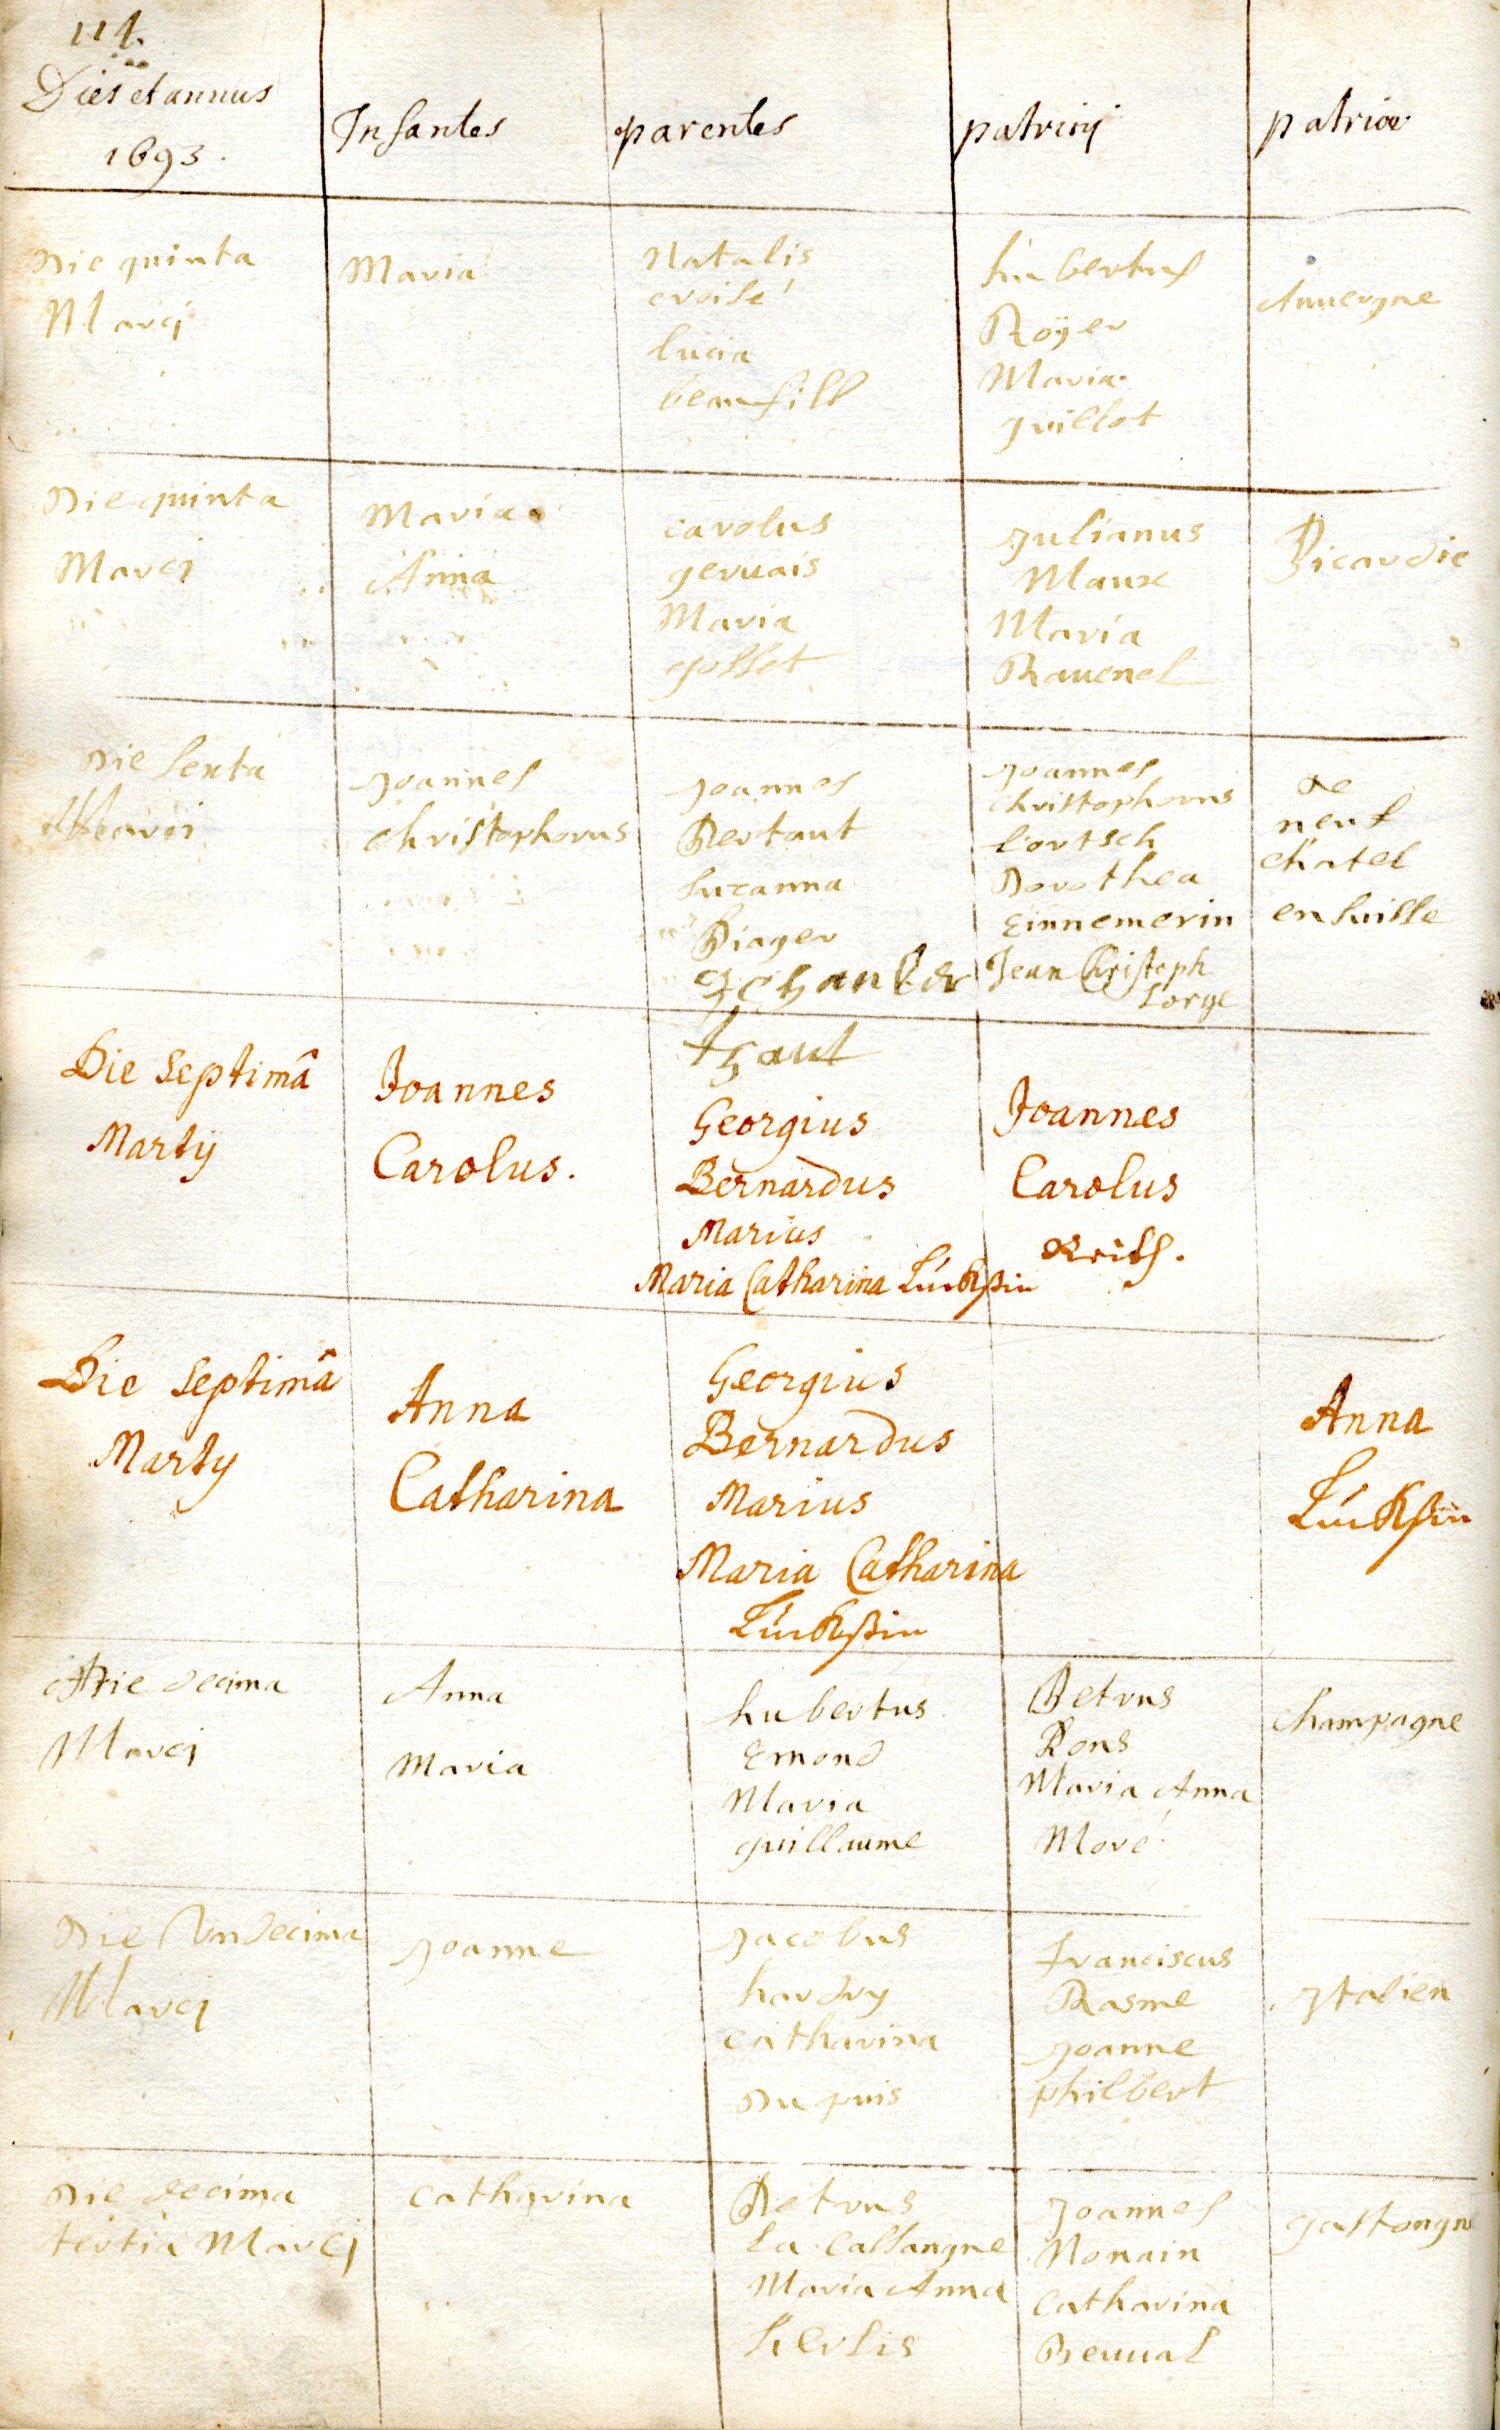 114.
Dies et annus
1693.
Infantes
parentes
patrinj
patriae
Die quinta
Marcj
Maria
Natalis
croisé
lucia
beaufill
hubertus
Roÿer
Maria
guillot
Auuergne
Die quinta
Marcj
Maria
Anna
carolus
geruais
Maria
gosset
Julianus
Maux
Maria
Rauenel
Picardie
Die sexta
Marci
Joannes
christophorus
Joannes
Pertaut
suzanna
Piager
Joannes
christophorus
lortsch
Dorothea
Einnemerin
Jean Christoph
Lorge
de
neuf
chatel
en suisse
Die Septimâ
Martÿ
Joannes
Carolus.
Georgius
Bernardus
Marius
Maria Catharina
Joannes
Carolus
Die Septimâ
Marty
Anna
Catharina
Georgius
Bernardus
Marius
Maria Catharina
Anna
Die decima
Marcj
Anna
Maria
hubertus
Emond
Maria
guillaume
Petrus
Rons
Maria Anna
Moré
champagne
Die Vndecima
Marcj
Joanne
Jacobus
hardry
catharina
Du puis
Franciscus
Rasme
Joanne
philbert
Jtalien
Die decima
tertia Marcj
catharina
Petrus
La Cassangne
Maria Anna
herlis
Joannes
Monain
catharina
Beuual
gastongne